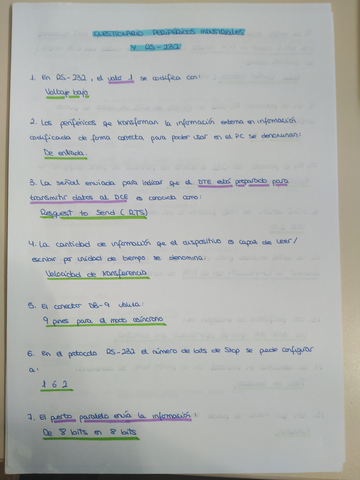 CUESTIONARIO PERIFÉRICOS INDUSTRIALES
Y RS-232
1. En RS-232, el valor 1 se codifica con:
Voltaje bajo
2. Los periféricos que transforman la información externa en información
codificada de forma correcta para poder usar en el PC se denominan:
De entrada.
3. La señal enviada para indicar que el DTE está preparado para
transmitir datos al DCE es conocida como:
Resquest to Send (RTS)
4. La cantidad de información que el dispositivo es capaz de leer/
escribir por unidad de tiempo se denomina:
Velocidad de transferencia
5. El conector DB-9 utiliza:
9 pines para el modo asíncrono
6. En el protocolo RS-232 el número de bits de Stop se puede configurar
a:
1 ó 2
7. El puerto paralelo envía la información:
De 8 bits en 8 bits